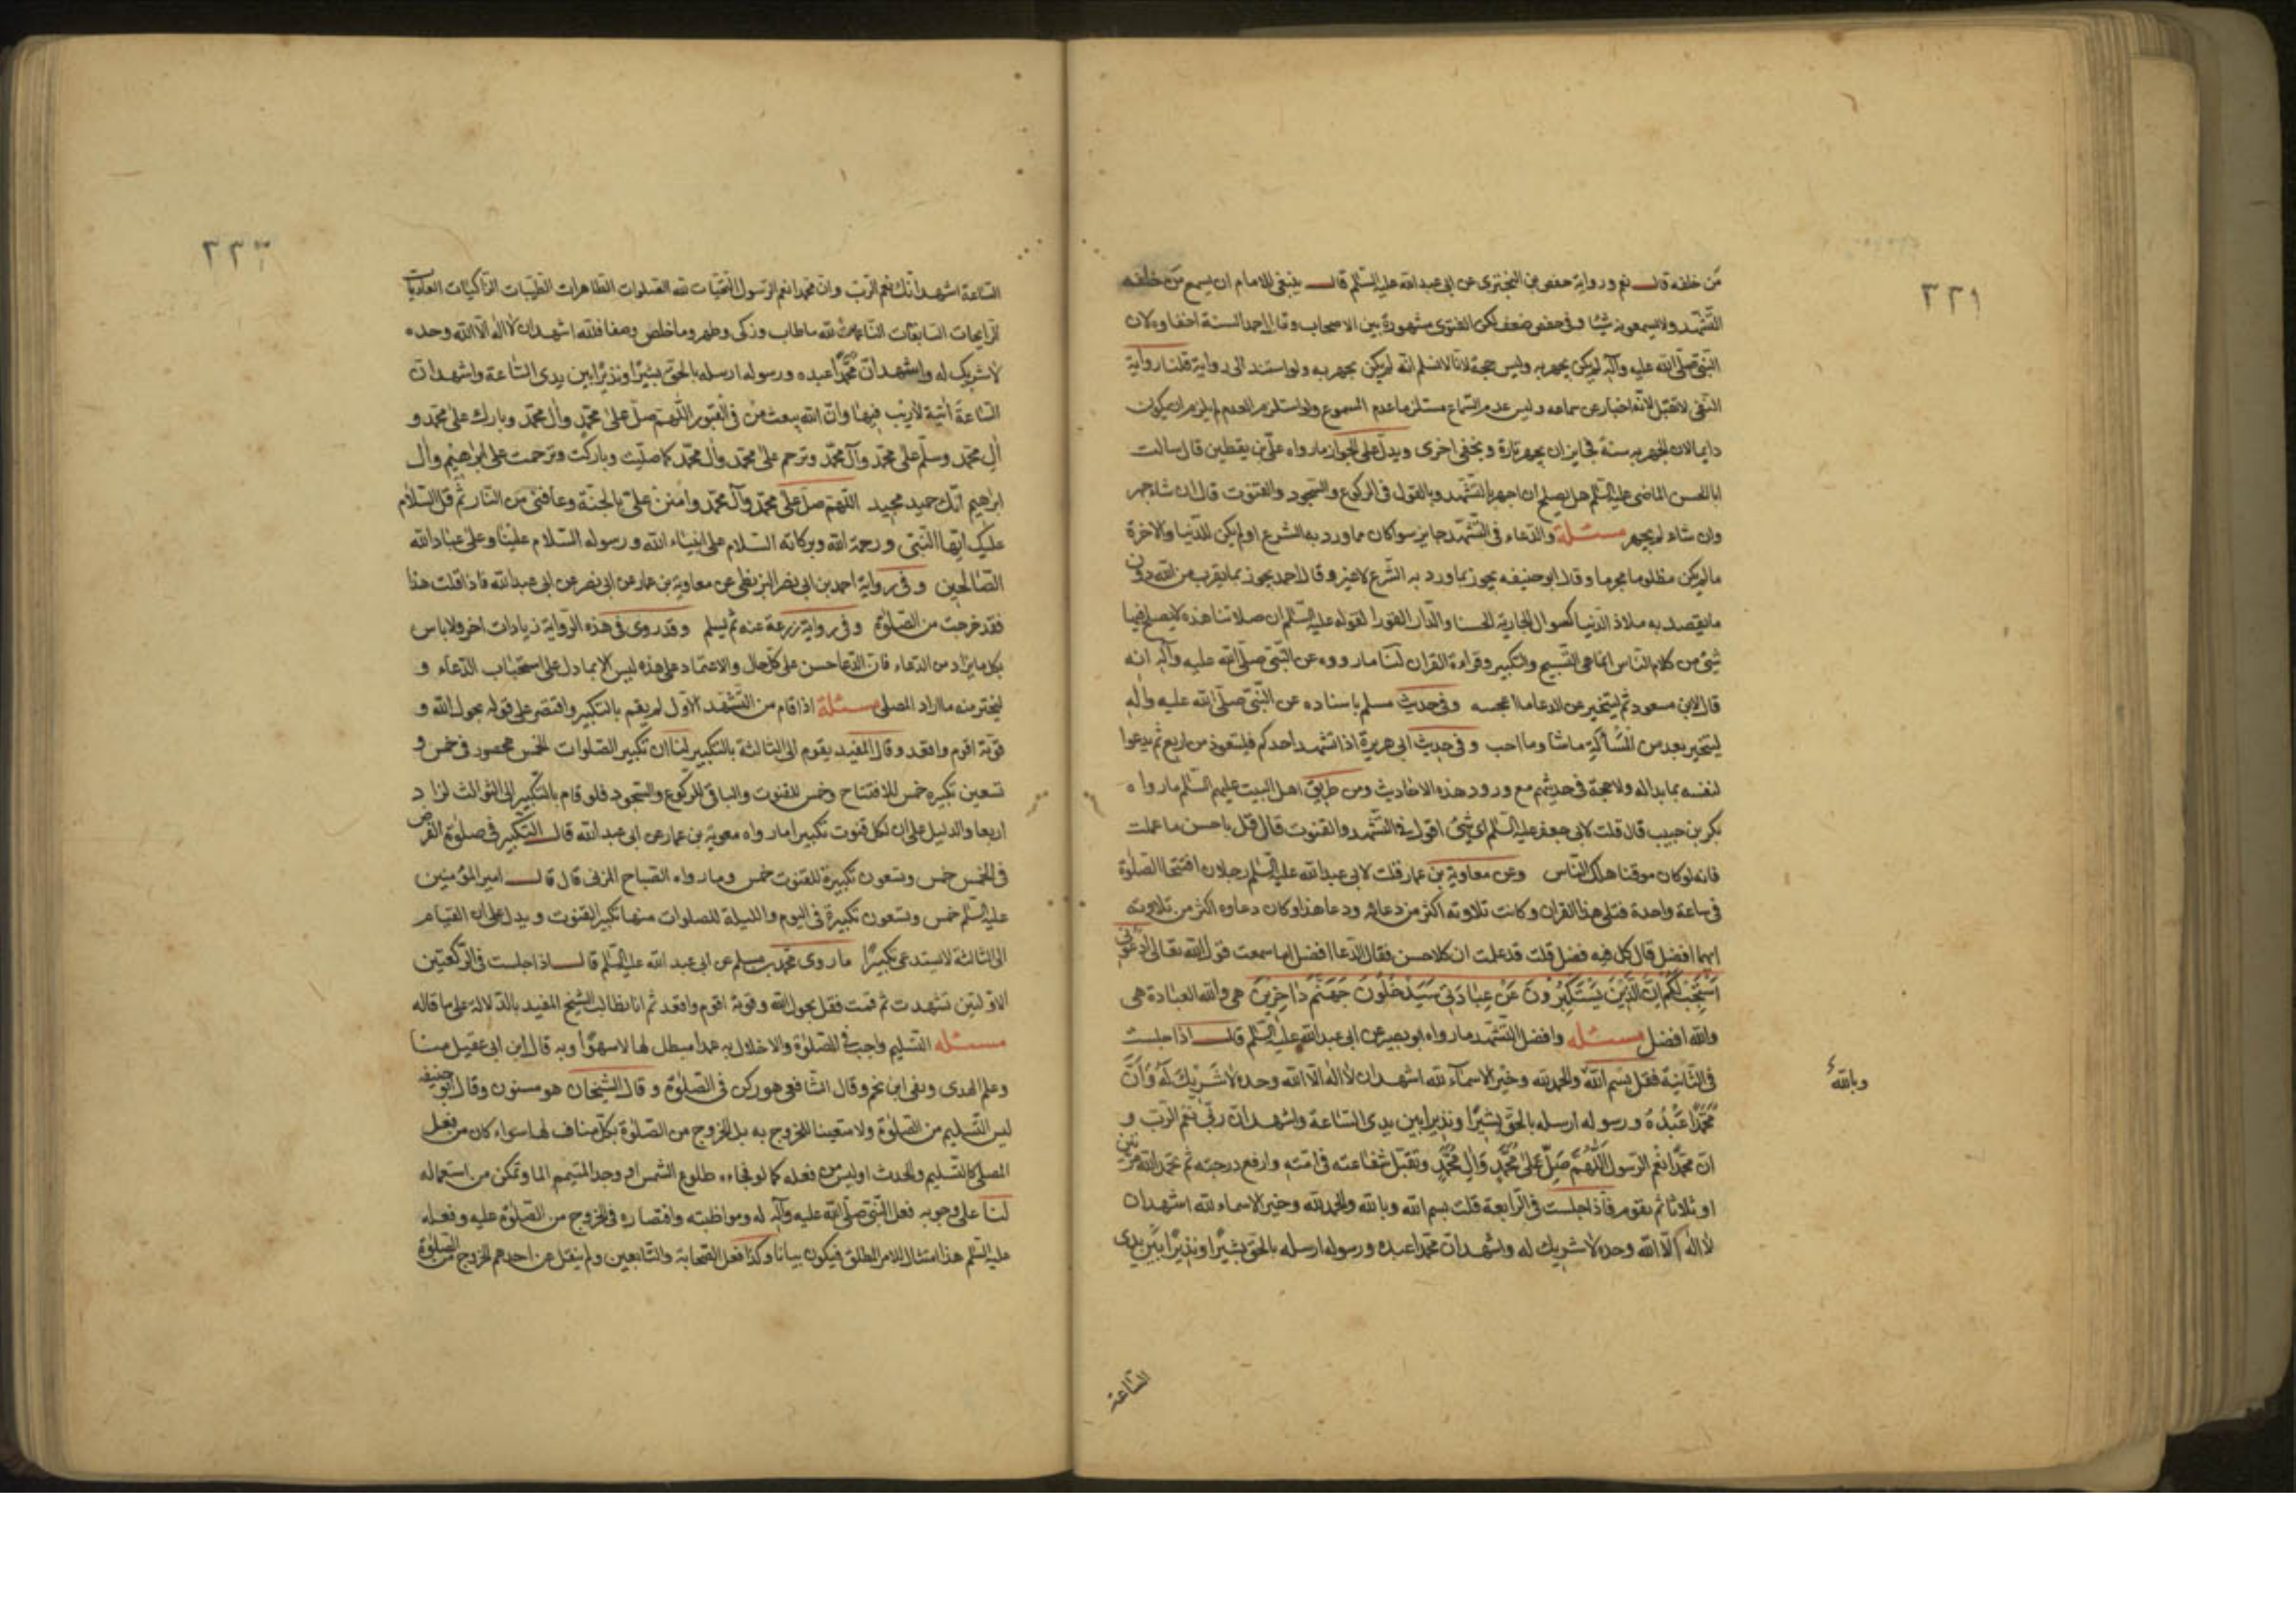 ٢٢١
من خلفه قال نعم ورواية حفص بن البختري عن ابى عبد الله عليه السّلم قال ينبغى للامام ان يسمع من خلفه
التّشهّد ولا يسمعونه شيئا وفى حفص ضعف لكن الفتوى مشهورة بين الاصحاب وقال احمد السنة اخفاوه لان
النبى صلّى الله عليه وآله لم يكن يجهر به وليس حجة لانا لا نسلم انه لم يكن يجهر به ولو استند الى رواية قلنا رواية
النفى لا تقبل لانه اخبار عن سماعه وليس عدم السّماع مستلزما عدم المسموع ولو استلزم العدم لم يلزم ان يكون
دايما لان الجهر به سنة فجايز ان يجهر تارة ويخفى اخرى ويدلّ على الجواز ما رواه علىّ بن يقطين قال سالت
ابا الحسن الماضى عليه السّلم هل يصلح ان اجهر بالتشّهد وبالقول فى الركوع والسّجود والقنوت قال ان شاء جهر
وان شاء لم يجهر مسئلة والدّعاء فى التّشهّد جايز سوا كان مما ورد به الشرع او لم يكن للدّنيا والاخرة
ما لم يكن مظلوما محرما وقال ابو حنيفه يجوز بما ورد به الشّرع لا غير وقال احمد يجوز بما يقرب من الله دون
ما يقصد به ملاذ الدّنيا كسوال الجارية الحسنا والدّار القورا لقوله عليه السّلم ان صلاتنا هذه لا يصلح فيها
شئ من كلام النّاس انما هى التّسبيح والتكبير وقراءة القران لنا ما رووه عن النّبى صلّى الله عليه وآله انه
قال لابن مسعود ثم ليتخير من الدعا ما اعجبه وفى حديث مسلم باسناده عن النّبى صلّى الله عليه وآله
ليتخير بعد من المسألة ما شا وما احب وفى حديث ابى هريرة اذا تشهد احدكم فليتعوذ من اربع ثم يدعوا
لنفسه بما بدا له ولا حجة فى حديثهم مع ورود هذه الاحاديث ومن طريق اهل البيت عليهم السّلم ما رواه
بكر بن حبيب قال قلت لابى جعفر عليه السّلم اى شئ اقول فى التّشهّد والقنوت قال قل باحسن ما علمت
فانه لو كان موقتا هلك النّاس وعن معاوية بن عمار قلت لابى عبد الله عليه السّلم رجلان افتتحا الصّلوة
فى ساعة واحدة فتلى هذا القران وكانت تلاوته اكثر من دعائه ودعا هذا وكان دعاوه اكثر من تلاوته
ايهما افضل قال كل فيه فضل قلت قد علمت ان كلا حسن فقال الدّعا افضل اما سمعت قول الله تعالى ادعونى
اَسْتَجِبْ لَكُمْ اِنَّ الَّذِيْنَ يَسْتَكْبِرُوْنَ عَنْ عِبَادَتِىْ سَيَدْخُلُوْنَ جَهَنَّمَ دَاخِرِيْنَ هى والله العبادة هى
والله افضل مسئله وافضل التّشهّد ما رواه ابو بصير عن ابى عبد الله عليه السّلم قال اذا جلست
فى الثّانية فقل بسم الله والحمد لله وخير الاسمآء لله اشهد ان لا اله الّا الله وحده لا شَرِيْكَ لَهُ وَاَنَّ
وبالله
مُحَمَّدًا عَبْدُهُ ورسوله ارسله بالحقّ بشيرًا ونذيرا بين يدى السّاعة واشهد ان ربّى نعم الرّب و
انّ محمّدًا نعم الرّسول اَللّٰهُمَّ صَلِّ عَلٰى مُحَمَّدٍ وَاٰلِ مُحَمَّدٍ وتقبل شفاعته فى امّته وارفع درجته ثم تحمد الله مرّتين
او ثلاثا ثم تقوم فاذا جلست فى الرّابعة قلت بسم الله وبالله والحمد لله وخير الاسماء لله اشهد ان
لا اله الّا الله وحده لا شريك له واشهد انّ محمّدا عبده ورسوله ارسله بالحقّ بشيرًا ونذيرًا بين يدى
السّاعة
٢٢٢
السّاعة اشهد انّك نعم الرّب وان محمدا نعم الرّسول التّحيّات لله الصّلوات الطّاهرات الطّيّبات الزّاكيات الغاديات
الرّايحات السّابغات النّاعمات لله ما طاب وزكى وطهر وما خلص وصفا فلله اشهد ان لا اله الّا الله وحده
لا شريك له واشهد انّ محمّدًا عبده ورسوله ارسله بالحقّ بشيرًا ونذيرًا بين يدى السّاعة واشهد انّ
السّاعة آتية لا ريب فيها وانّ الله يبعث من فى القبور اللّهم صلّ على محمّد وآل محمّد وبارك على محمّد و
آل محمّد وسلّم على محمّد وآل محمّد وترحم على محمّد وآل محمّد كما صلّيت وباركت وترحمت على ابراهيم وآل
ابراهيم انّك حميد مجيد اللّهم صلّ على محمّد وآل محمّد وامنن علىّ بالجنّة وعافنى من النّار ثم قل السّلام
عليك ايّها النّبى ورحمة الله وبركاته السّلام على انبياء الله ورسوله السّلام علينا وعلى عباد الله
الصّالحين وفى رواية احمد بن ابى نصر البزنطى عن معاوية بن عمار عن ابى بصير عن ابى عبد الله فاذا قلت هذا
فقد خرجت من الصّلوة وفى رواية زرعة عنه ثم يسلم وقد روى فى هذه الرّواية زيادات اخر ولا باس
بكل ما يزاد من الدعاء فان الدّعا حسن على كلّ حال والاعتماد على هذه ليس الا بما دل على استحباب الدّعاء و
ليختر منه ما اراد المصلى مسئلة اذا قام من التّشهّد الاوّل لم يقم بالتكبير واقتصر على قوله بحول الله و
قوّته اقوم واقعد وقال المفيد يقوم الى الثالثة بالتّكبير لنا ان تكبير الصّلوات الخمس محصور فى خمس و
تسعين تكبيره خمس للافتتاح وخمس للقنوت والباقى للرّكوع والسّجود فلو قام بالتّكبير الى الثوالث لزاد
اربعا والدليل على ان لكل قنوت تكبيرا ما رواه معوية بن عمار عن ابى عبد الله قال التّكبير فى صلوة الفرض
فى الخمس خمس وتسعون تكبيرة للقنوت خمس وما رواه الصّباح المزنى قال قال امير المؤمنين
عليه السّلم خمس وتسعون تكبيرة فى اليوم والليلة للصلوات منها تكبير القنوت ويدل على ان القيام
الى الثالثة لا يستدعى تكبيرًا ما روى محمّد بن مسلم عن ابى عبد الله عليه السّلم قال اذا جلست فى الركعتين
الاوّلتين تشهدت ثم قمت فقل بحول الله وقوته اقوم واقعد ثم انا نطالب الشّيخ المفيد بالدّلالة على ما قاله
مسئله التّسليم واجب فى الصّلوة والاخلال به عمدا مبطل لها لا سهوًا وبه قال ابن ابى عقيل منّا
وعلم الهدى وقال الشّافعى هو ركن فى الصّلوة وقال الشّيخان هو مسنون وقال ابو حنيفه
ليس التّسليم من الصّلوة ولا متعينا للخروج به بل الخروج من الصّلوة بكلّ مناف لها سواء كان من فعل
المصلى كالتّسليم والحدث او ليس من فعله كما لو فجاءه طلوع الشمس او وجد المتيمم الما وتمكن من استعماله
لنا على وجوبه فعل النّبى صلّى الله عليه وآله له ومواظبته واقتصاره فى الخروج من الصّلوة عليه وفعله
عليه السّلم هذا امتثال للامر المطلق فيكون بيانا وكذا فعل الصّحابة والتّابعين ولم ينقل عن احدهم الخروج من الصّلوة